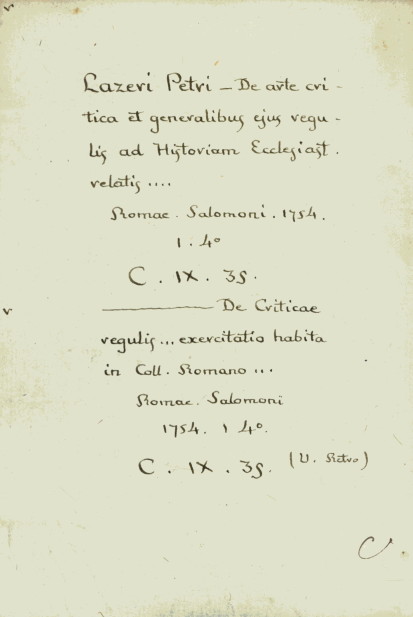 Lazeri Petri – De arte cri-
tica et generalibus ejus regu-
lis ad Historiam Ecclesiast.
relatis ....
Romae. Salomoni. 1754.
1. 4°
C. IX. 35.
——— De Criticae
regulis ... exercitatio habita
in Coll. Romano ...
Romae. Salomoni
1754. 1 4°.
C. IX. 35. (V. Retro)